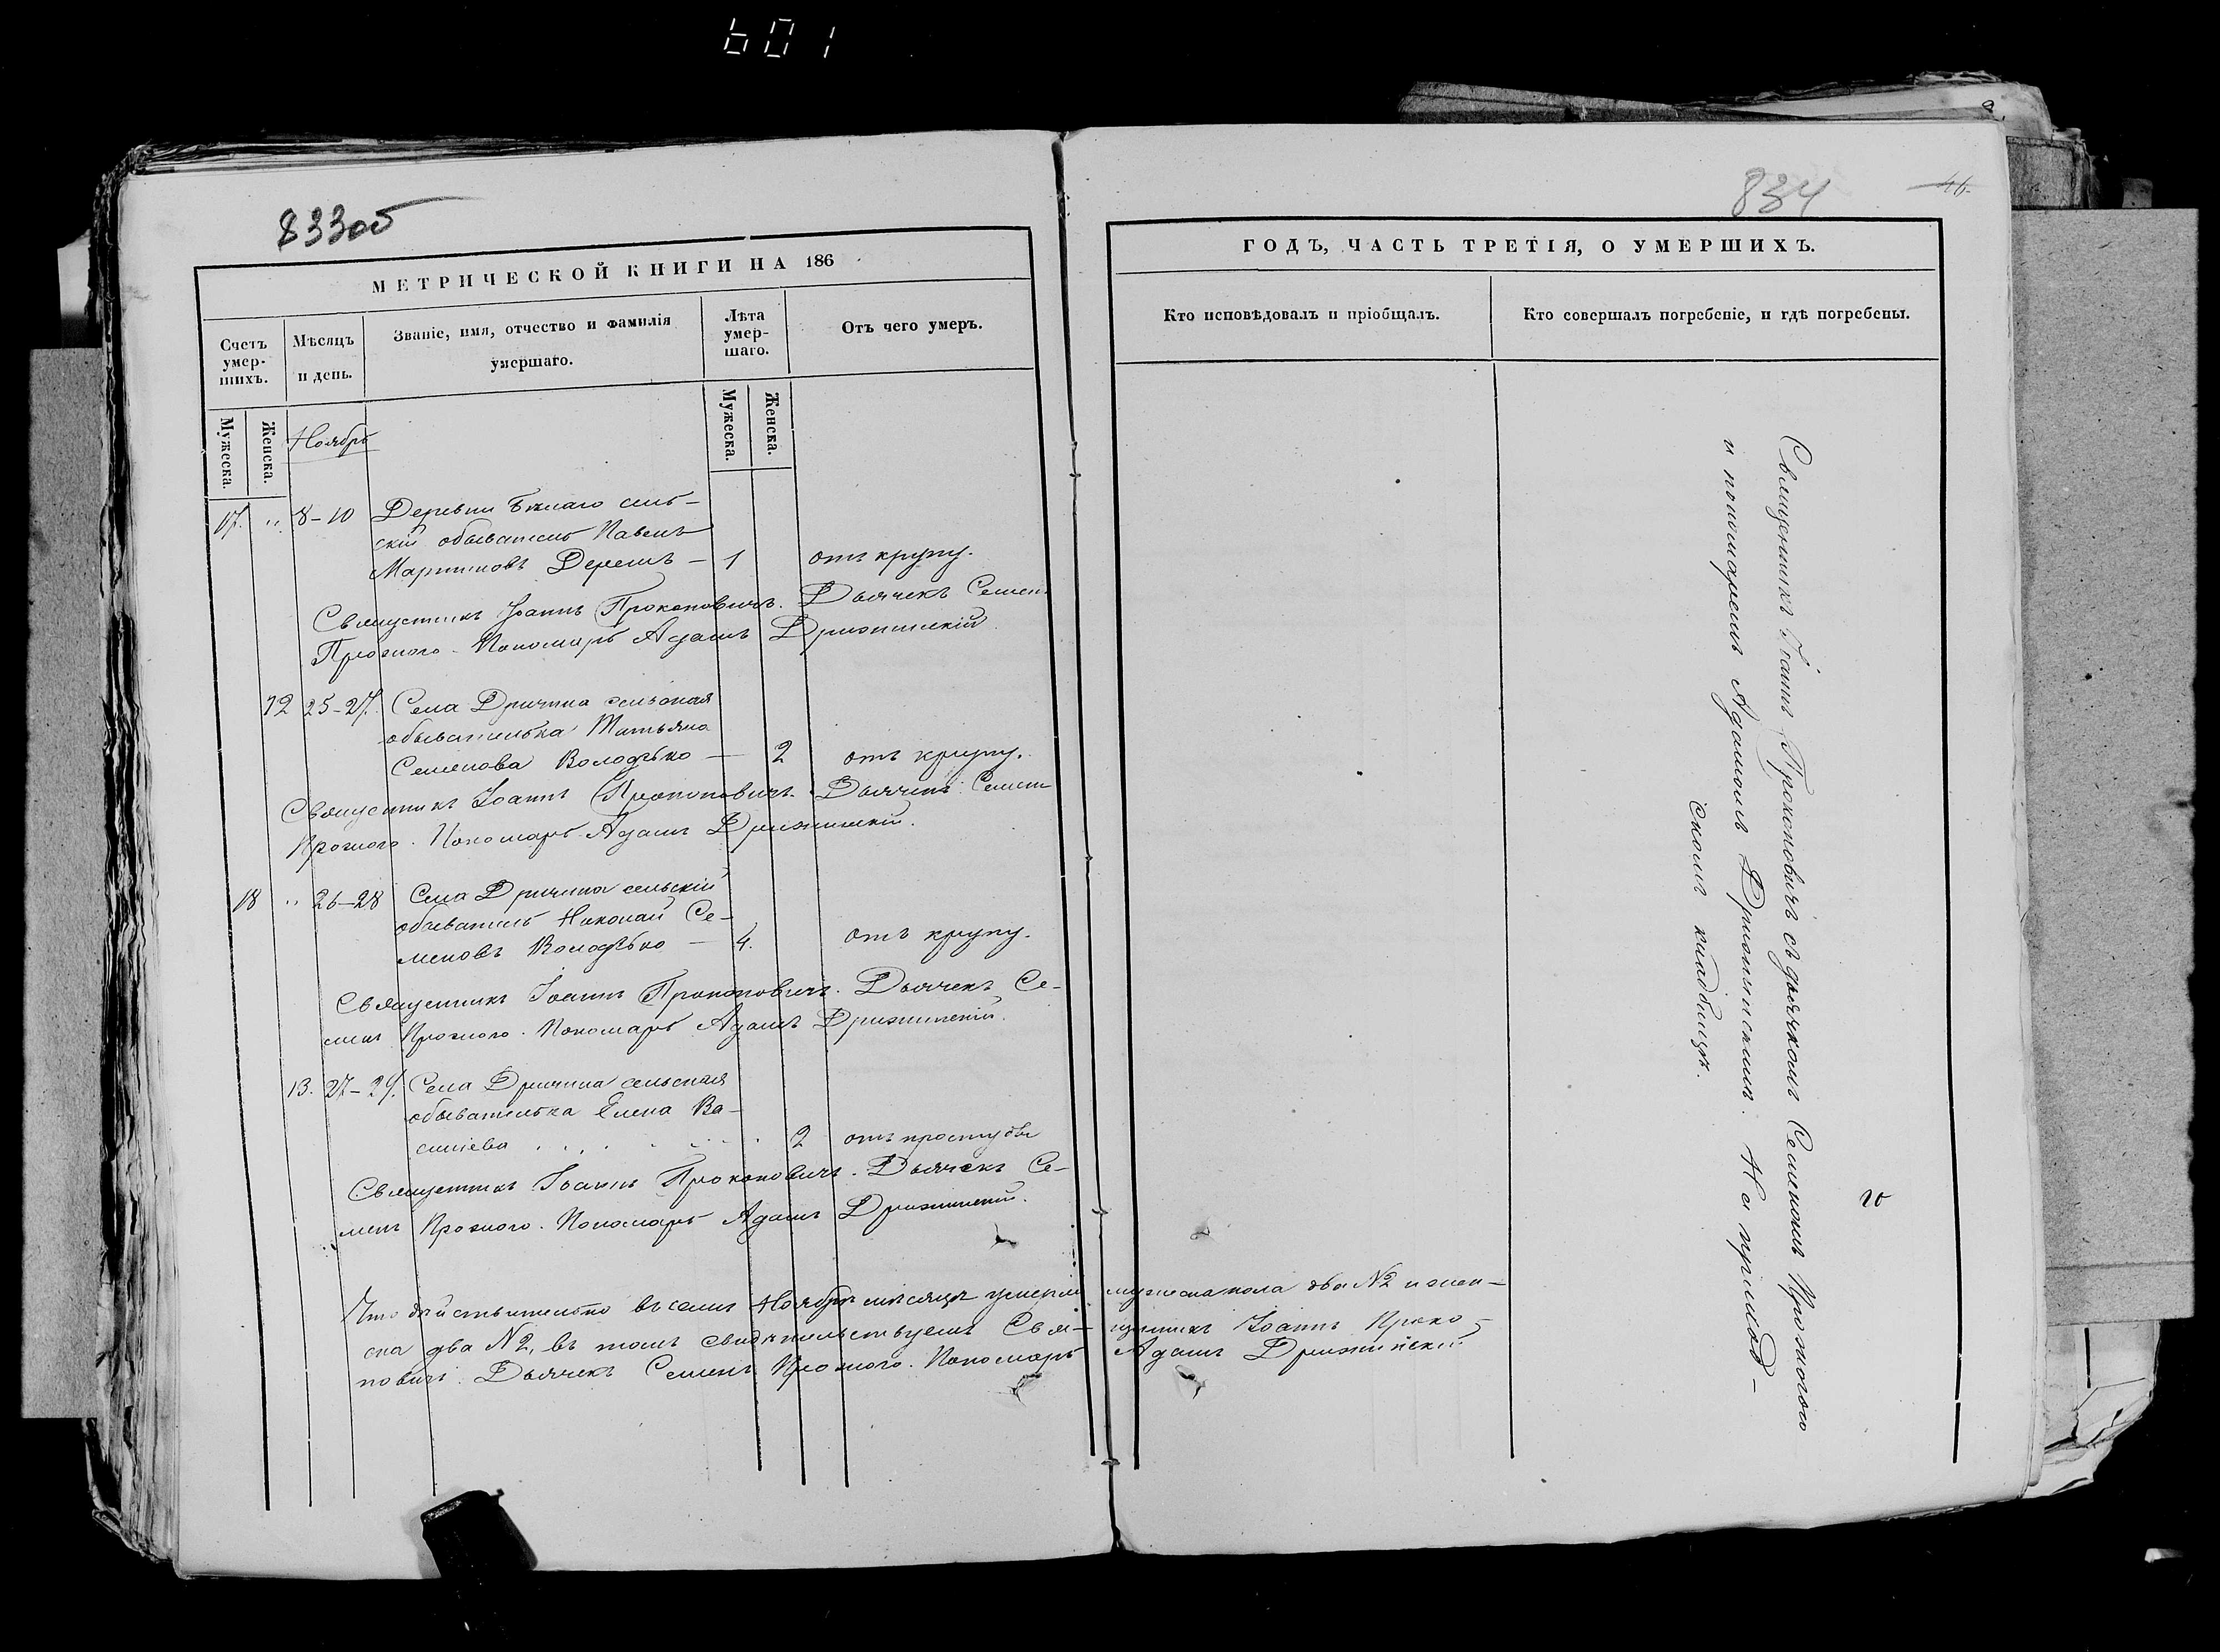 601
833об
МЕТРИЧЕСКОЙ КНИГИ НА 186
Счетъ умер-
шихъ.
Мѣсяцъ
и день.
Званіе, имя, отчество и фамилія
умершаго.
Лѣта
умер-
шаго.
Отъ чего умеръ.
Мужеска.
Женска.
Ноябрь
Мужеска.
Женска.
17. " 8-10 Деревни сель-
скій обыватель Павелъ
Мартиновъ Дерешъ — 1 отъ крупу.
Священникъ Іоаннъ Прокоповичъ. Дьячекъ Семенъ
Пономарь Адамъ
12 25-27. Села Дричина сельская
обывателька Татьяна
Семенова Володько — 2 отъ крупу.
Священникъ Іоаннъ Прокоповичъ. Дьячекъ Семенъ
Пономарь Адамъ
18 " 26-28 Села Дричина сельскій
обыватель Николай Се-
меновъ Володько — 4. отъ крупу.
Священникъ Іоаннъ Прокоповичъ. Дьячекъ Се-
менъ Пономарь Адамъ
13. 27-29. Села Дричина сельская
обывателька Елена Ва-
силіева 2 отъ простуды
Священникъ Іоаннъ Прокоповичъ. Дьячекъ Се-
менъ Пономарь Адамъ
Что дѣйствительно въ семъ Ноябрѣ мѣсяцѣ умерло мужеска пола два №2 и жен-
ска два №2, въ томъ свидѣтельствуемъ Свя- щенникъ Іоаннъ Проко-
повичъ. Дьячекъ Семенъ Пономарь Адамъ
834
46.
ГОДЪ, ЧАСТЬ ТРЕТІЯ, О УМЕРШИХЪ.
Кто исповѣдовалъ и пріобщалъ.
Кто совершалъ погребеніе, и гдѣ погребены.
Священникъ Іоаннъ Прокоповичъ съ дьячкомъ Семеномъ
и пономаремъ Адамомъ На приход-
скомъ кладбищѣ.